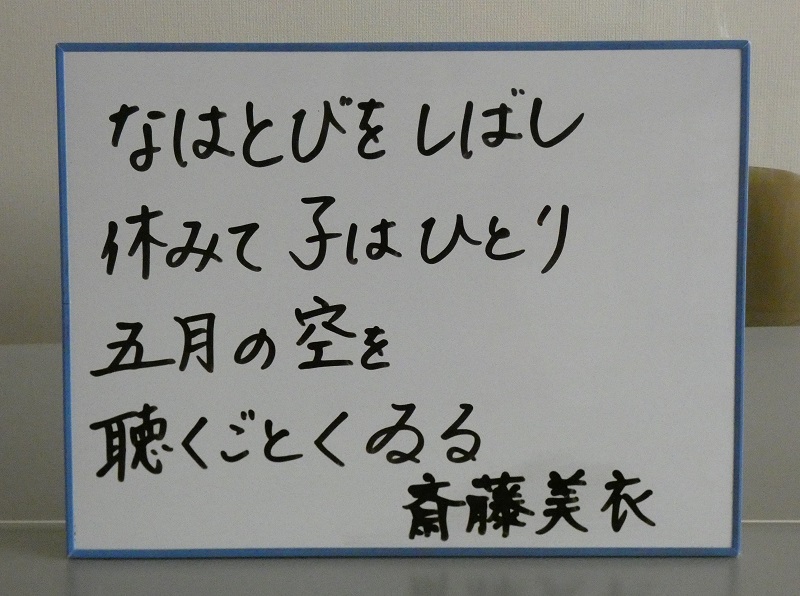 なはとびをしばし
休みて子はひとり
五月の空を
聴くごとくゐる
斎藤美衣